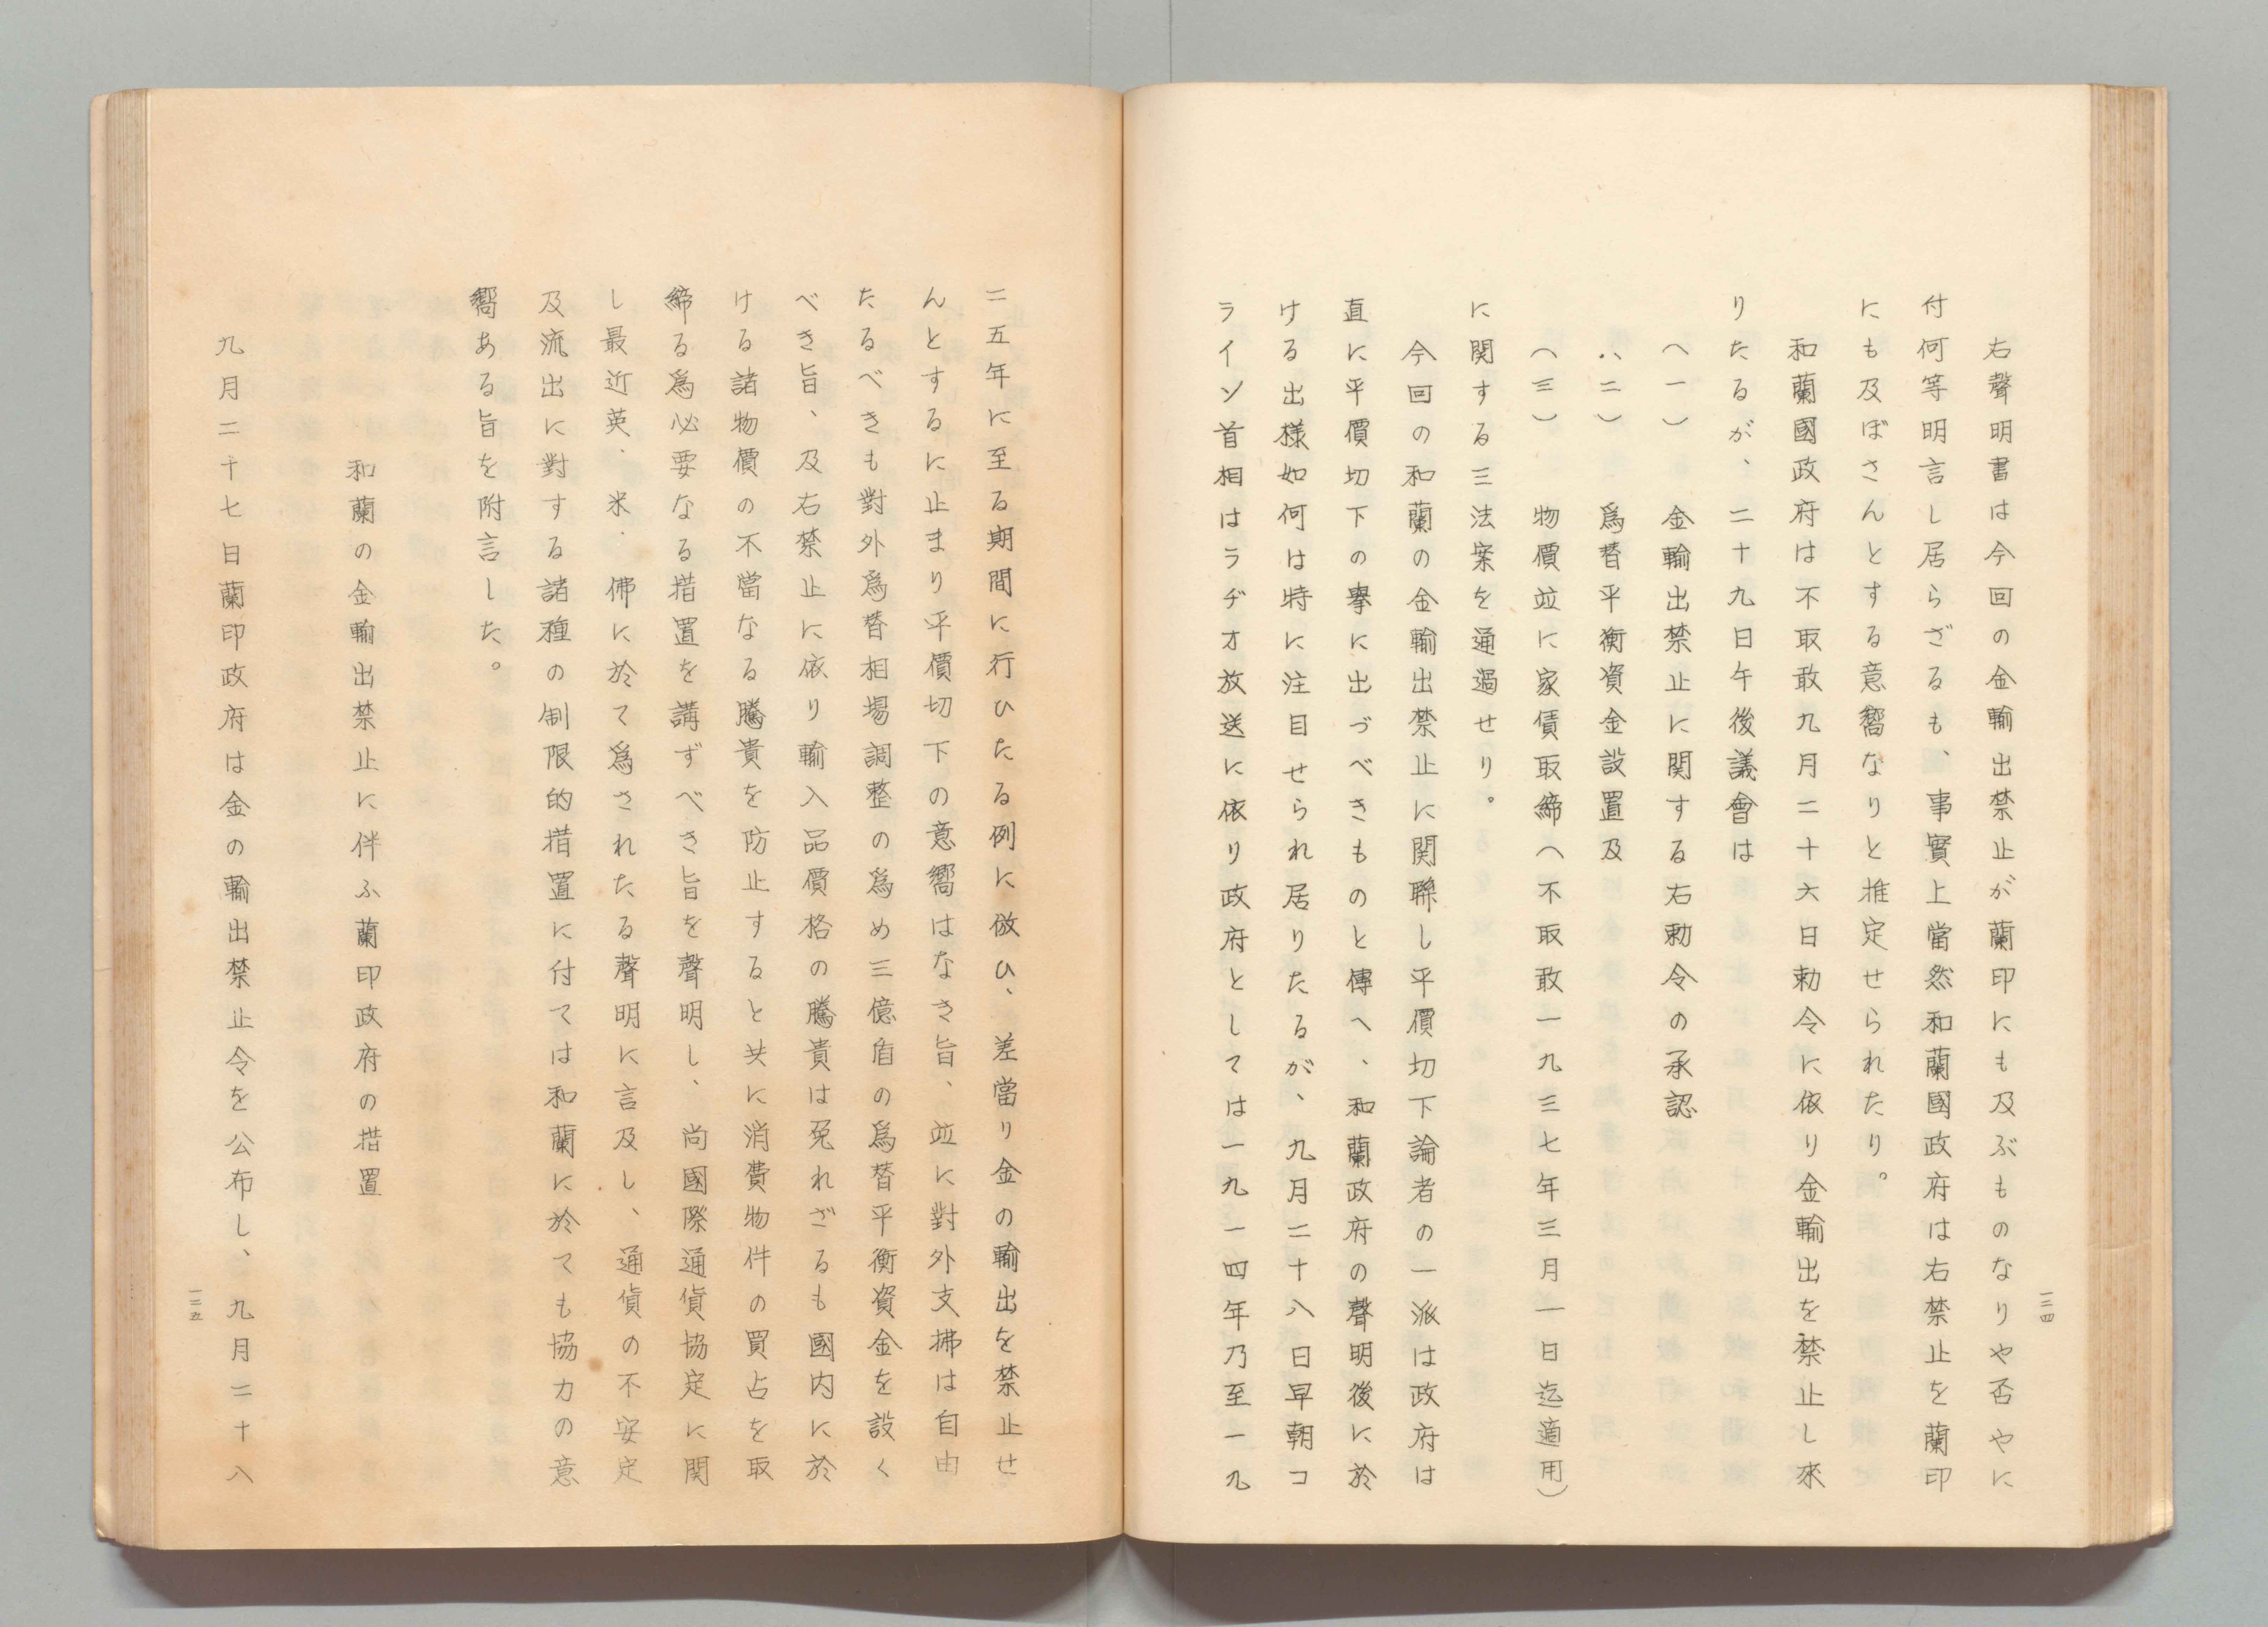 右聲明書は今回の金輸出禁止が蘭印にも及ぶものなりや否やに
付何等明言し居らざるも、事實上當然和蘭國政府は右禁止を蘭印
にも及ぼさんとする意嚮なりと推定せられたり。
和蘭國政府は不取敢九月二十六日勅令に依り金輸出を禁止し來
りたるが、二十九日午後議會は
(一) 金輸出禁止に関する右勅令の承認
(二) 爲替平衡資金設置及
(三) 物價並に家債取締(不取敢一九三七年三月一日迄適用)
に関する三法案を通過せり。
今回の和蘭の金輸出禁止に関聯し平價切下論者の一派は政府は
直に平價切下の擧に出づべきものと傳へ、和蘭政府の聲明後に於
ける出様如何は特に注目せられ居りたるが、九月二十八日早朝コ
ライン首相はラヂオ放送に依り政府としては一九一四年乃至一九
一三四
二五年に至る期間に行ひたる例に倣ひ、差當り金の輸出を禁止せ
んとするに止まり平價切下の意嚮はなき旨、並に對外支拂は自由
たるべきも對外爲替相場調整の爲め三億盾の爲替平衡資金を設く
べき旨、及右禁止に依り輸入品價格の騰貴は免れざるも國内に於
ける諸物價の不當なる騰貴を防止すると共に消費物件の買占を取
締る爲必要なる措置を講ずべき旨を聲明し、尚國際通貨協定に関
し最近英．米．佛に於て爲されたる聲明に言及し、通貨の不安定
及流出に對する諸種の制限的措置に付ては和蘭に於ても協力の意
嚮ある旨を附言した。
和蘭の金輸出禁止に伴ふ蘭印政府の措置
九月二十七日蘭印政府は金の輸出禁止令を公布し、九月二十八
一三五